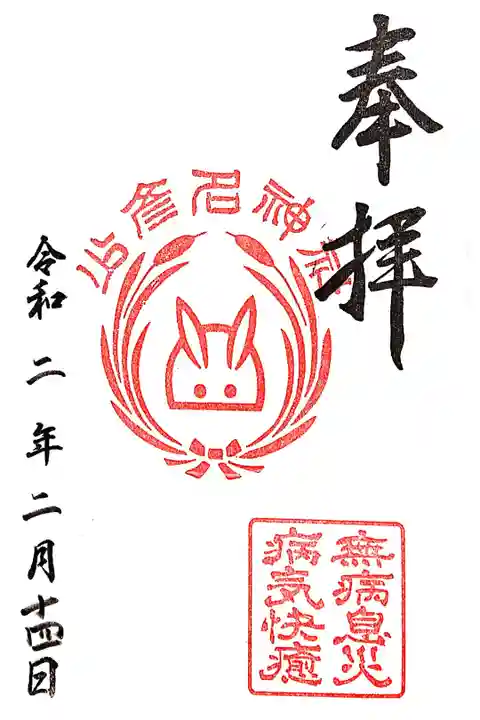 奉拝
少彦名神社
無病息災
病気快癒
令和二年二月十四日